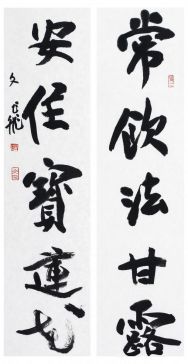 常飲法甘露
安住寶蓮花